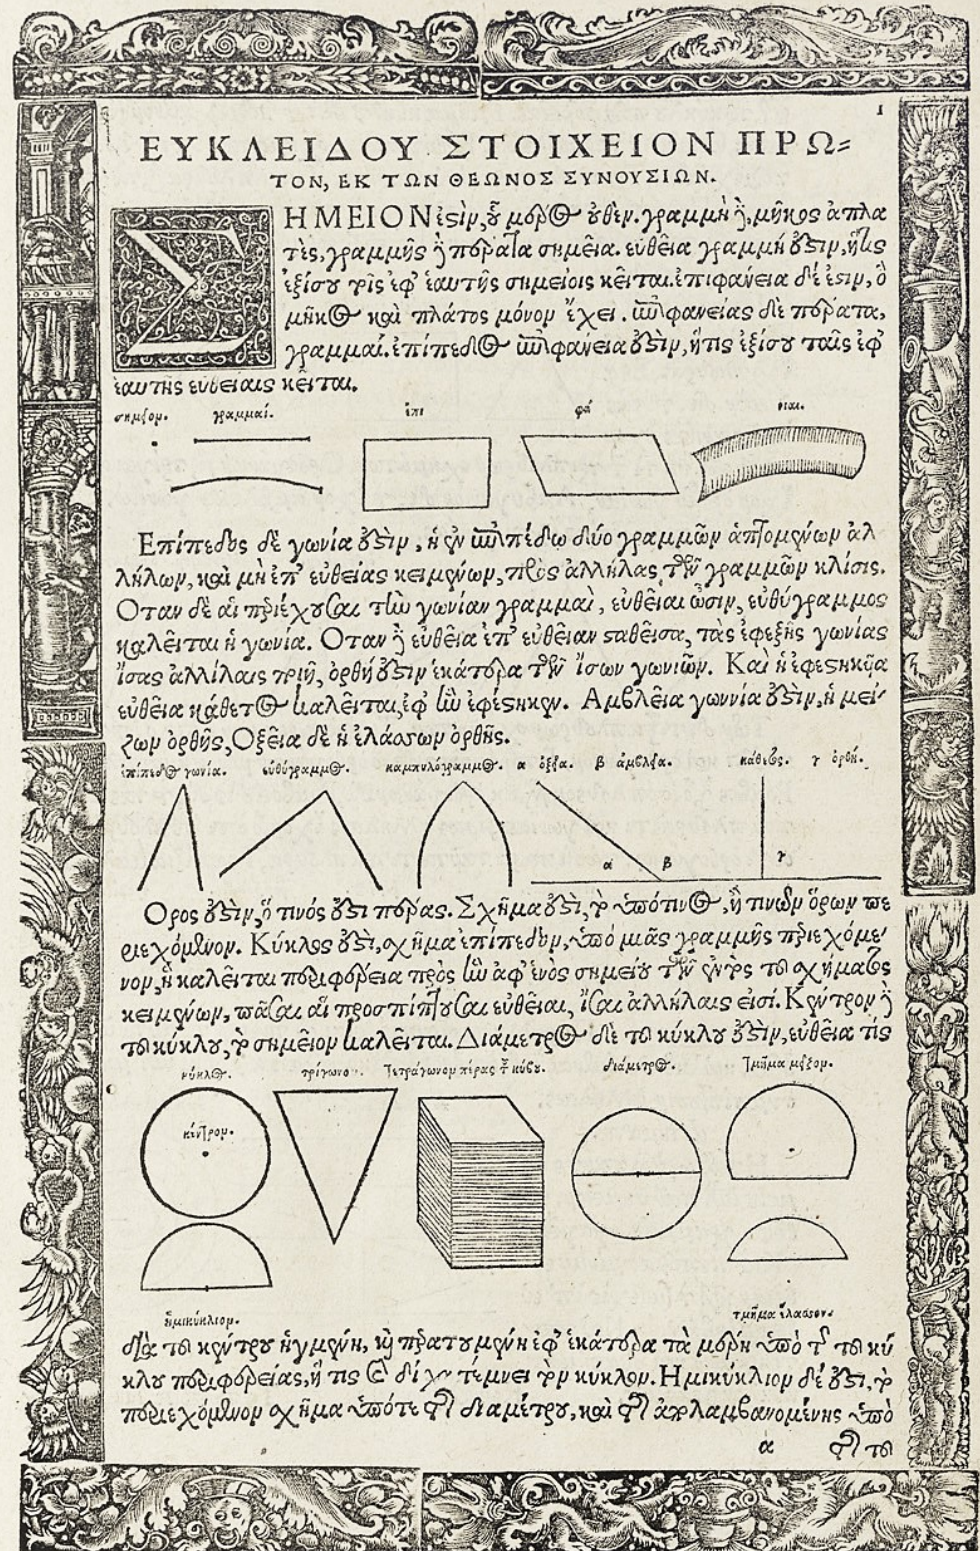 1
ΕΥΚΛΕΙΔΟΥ ΣΤΟΙΧΕΙΟΝ ΠΡΩ=
ΤΟΝ, ΕΚ ΤΩΝ ΘΕΩΝΟΣ ΣΥΝΟΥΣΙΩΝ.
ΣΗΜΕΙΟΝ ἐστὶν, οὗ μέρος οὐθὲν. γραμμὴ δὲ, μῆκος ἀπλα
τὲς, γραμμῆς δὲ πέρατα σημεῖα. εὐθεῖα γραμμή ἐστιν, ἥτις
ἐξίσου τοῖς ἐφ' ἑαυτῆς σημείοις κεῖται. ἐπιφάνεια δέ ἐστιν, ὃ
μῆκος καὶ πλάτος μόνον ἔχει. ἐπιφανείας δὲ πέρατα,
γραμμαί. ἐπίπεδος ἐπιφάνειά ἐστιν, ἥτις ἐξίσου ταῖς ἐφ'
ἑαυτῆς εὐθείαις κεῖται.
σημεῖον. γραμμαί. ἐπι φά νιαι.
Επίπεδος δὲ γωνία ἐστὶν, ἡ ἐν ἐπιπέδῳ δύο γραμμῶν ἁπτομένων ἀλ
λήλων, καὶ μὴ ἐπ' εὐθείας κειμένων, πρὸς ἀλλήλας τῶν γραμμῶν κλίσις.
Οταν δὲ αἱ περιέχουσαι τὴν γωνίαν γραμμαὶ, εὐθεῖαι ὦσιν, εὐθύγραμμος
καλεῖται ἡ γωνία. Οταν δὲ εὐθεῖα ἐπ' εὐθεῖαν σταθεῖσα, τὰς ἐφεξῆς γωνίας
ἴσας ἀλλίλαις ποιῇ, ὀρθή ἐστιν ἑκάτερα τῶν ἴσων γωνιῶν. Καὶ ἡ ἐφεστηκῦα
εὐθεῖα κάθετος καλεῖται, ἐφ' ἣν ἐφέστηκεν. Αμβλεῖα γωννία ἐστὶν, ἡ μεί-
ζων ὀρθῆς, Οξεῖα δὲ ἡ ἐλάσσων ὀρθῆς.
ἐπίπεδος γωνία. εὐθύγραμμος. καμπυλόγραμμος. α ὀξεῖα. β ἀμβλεῖα. κάθετος. γ ὀρθή.
α β γ
Ορος ἐστὶν, ὅ τινός ἐστι πέρας. Σχῆμα ἐστὶ, τὸ ὑπότινος, ἤ τινων ὅρων πε
ριεχόμενον. Κύκλος ἐστὶ, σχῆμα ἐπίπεδον, ὑπὸ μιᾶς γραμμῆς περιεχόμε-
νον, ἣ καλεῖται περιφέρεια πρὸς ἣν ἀφ' ἑνὸς σημείου τῶν ἐντὸς τοῦ σχήματος
κειμένων, πᾶσαι αἱ προσπίπτουσαι εὐθεῖαι, ἴσαι ἀλλήλαις εἰσί. Κέντρον δὲ
τοῦ κύκλου, τὸ σημεῖον καλεῖται. Διάμετρος δὲ τοῦ κύκλου ἐστὶν, εὐθεῖα τίς
κύκλος. τρίγωνο. Τετράγωνον πέρας τοῦ κύβου. διάμετρος. Τμῆμα μεῖζον.
κέντρον.
ἡμικύκλιον. τμῆμα ἔλασσον.
διὰ τοῦ κέντρου ἠγμένη, καὶ περατουμένη ἐφ' ἑκάτερα τὰ μέρη ὑπὸ τῆς τοῦ κύ
κλου περιφερείας, ἥ τις καὶ δίχα τέμνει τὸν κύκλον. Ημικύκλιον δέ ἐστι, τὸ
περιεχόμενον σχῆμα ὑπότε τῆς διαμέτρου, καὶ τῆς ἀπολαμβανομένης ὑπὸ
α τῆς τοῦ